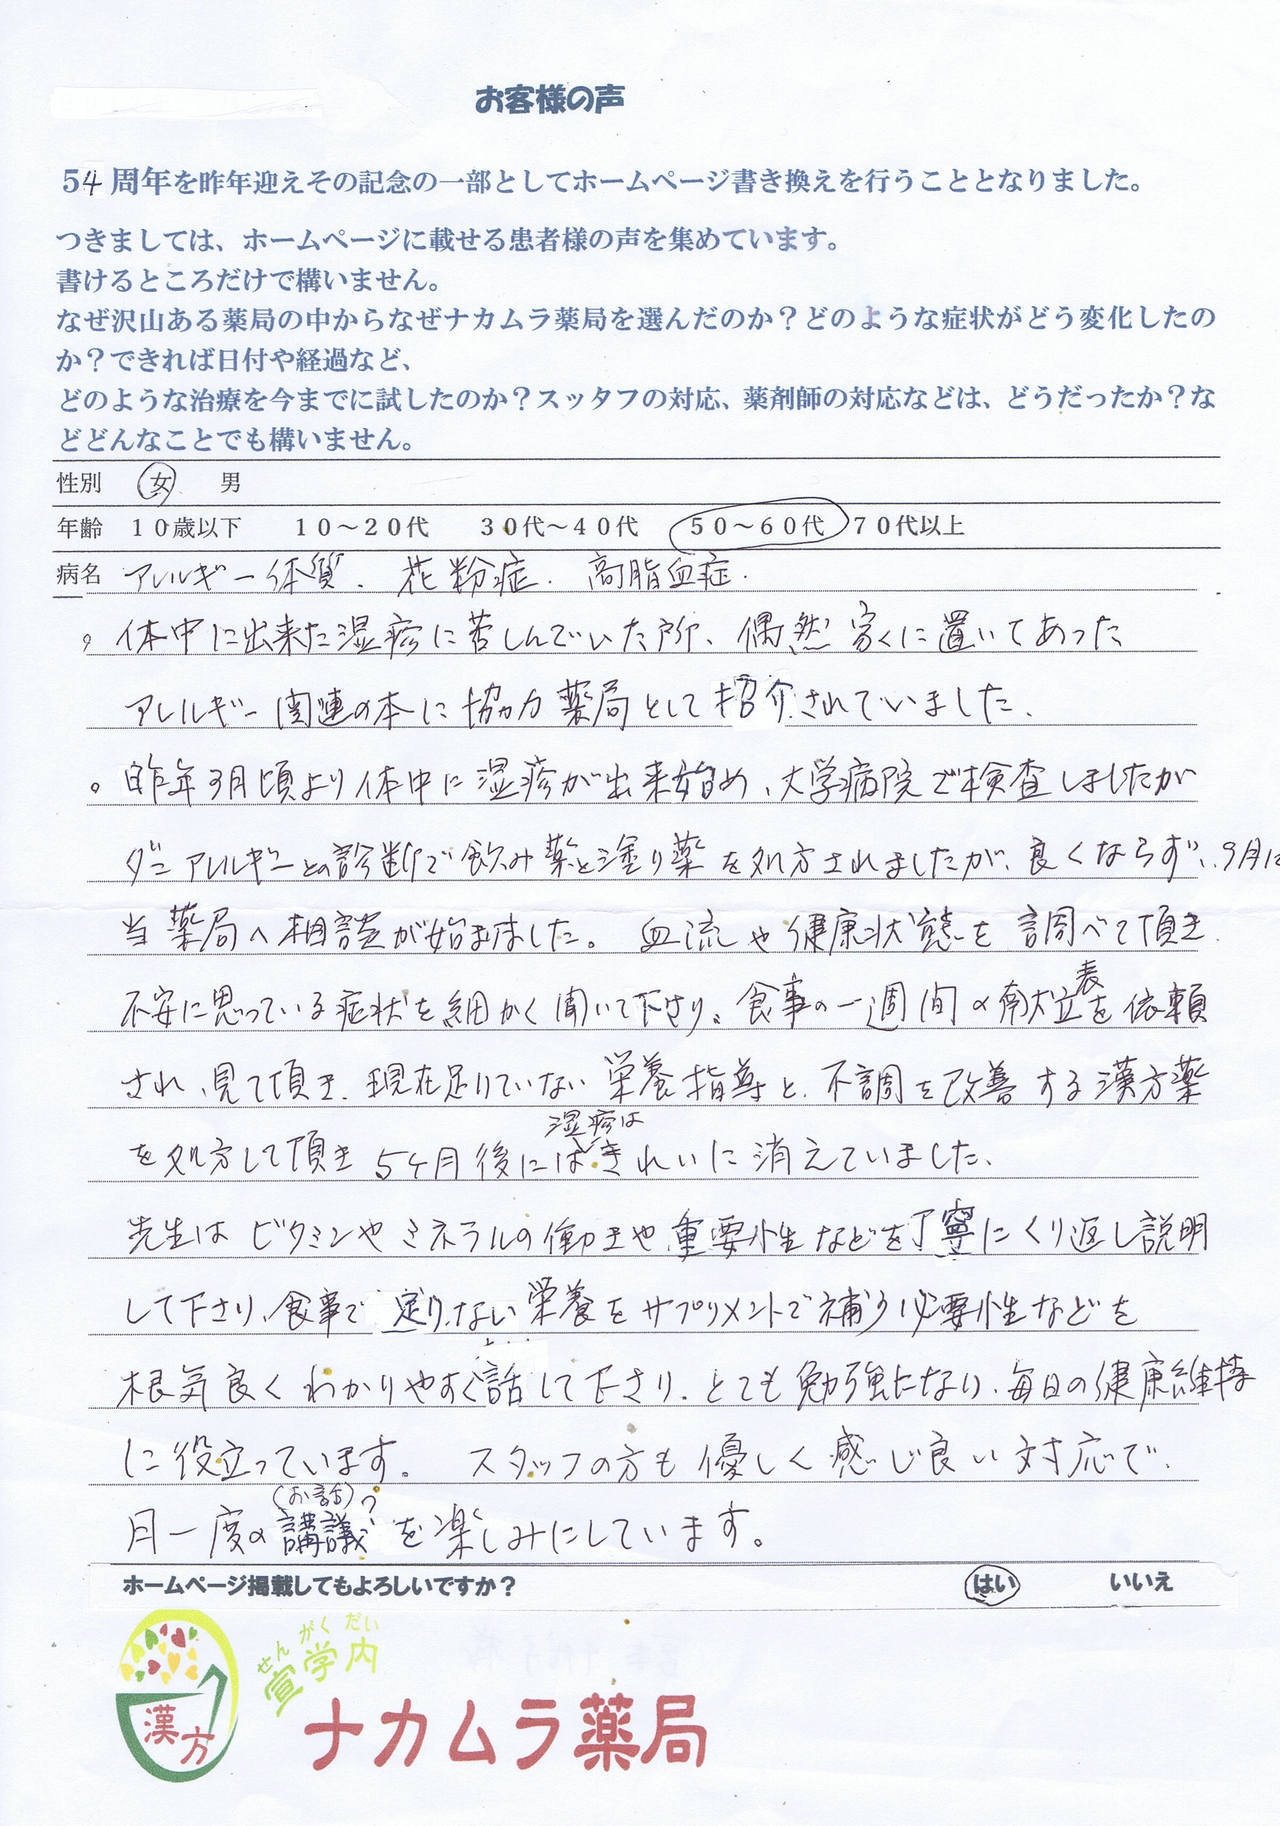 お客様の声
54周年を昨年迎えその記念の一部としてホームページ書き換えを行うこととなりました。
つきましては、ホームページに載せる患者様の声を集めています。
書けるところだけで構いません。
なぜ沢山ある薬局の中からなぜナカムラ薬局を選んだのか？どのような症状がどう変化したの
か？できれば日付や経過など、
どのような治療を今までに試したのか？スッタフの対応、薬剤師の対応などは、どうだったか？な
どどんなことでも構いません。
性別 女 男
年齢 １０歳以下 １０～２０代 ３０代～４０代 ５０～６０代 ７０代以上
病名 アレルギー体質．花粉症．高脂血症．
。体中に出来た湿疹に苦しんでいた所、偶然家に置いてあった
アレルギー関連の本に協力薬局として紹介されていました．
。昨年3月頃より体中に湿疹が出来始め、大学病院で検査しましたが
ダニアレルギーとの診断で飲み薬と塗り薬を処方されましたが、良くならず、9月に
当薬局へ相談が始まりました。血流や健康状態を調べて頂き
不安に思っている症状を細かく聞いて下さり。食事の一週間の献立表を依頼
され、見て頂き、現在足りていない栄養指導と、不調を改善する漢方薬
を処方して頂き5ヶ月後には湿疹はきれいに消えていました、
先生はビタミンやミネラルの働きや重要性などを丁寧にくり返し説明
して下さり、食事で足りない栄養をサプリメントで補う必要性などを
根気良くわかりやすく話して下さり、とても勉強になり、毎日の健康維持
に役立っています。スタッフの方も優しく感じ良い対応で、
月一度の講義(お話)?を楽しみにしています。
ホームページ掲載してもよろしいですか？ はい いいえ
せんがくだい
宣学内
漢方
ナカムラ薬局